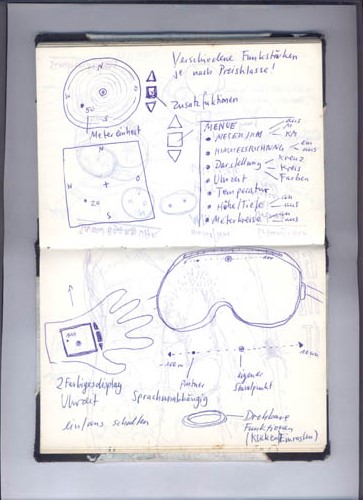 Verschiedene Funkstärken
je nach Preisklasse!
N
50
S
Zusatzfunktionen
Metereinheit
MENUE
METER/KM
aus
M
KM
HIMMELSRICHTUNG
ein
aus
Darstellung
Kreuz
Kreis
Farben
Uhrzeit
Temperatur
Höhe/Tiefe
an
aus
Meterkreise
an
aus
N
W
O
20
S
Partner
eigener
Standpunkt
2 Farbiges display
Uhrzeit
ein/aus schalten
Sprachunabhängig
Drehbare
Funktionen
(Klicken/Einrasten)